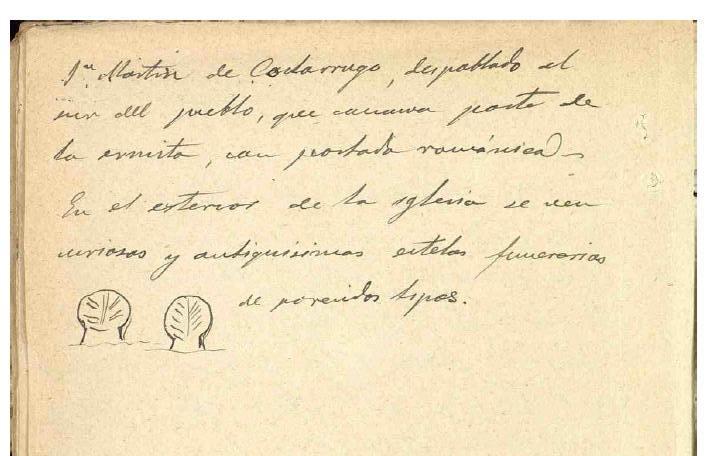 Sn. Martin de Codarrugo, despoblado al
sur del pueblo, que conserva parte de
la ermita, con portada románica.
En el esterior de la yglesia se ven
curiosas y antiquisimas estelas funerarias
de parecidos tipos.